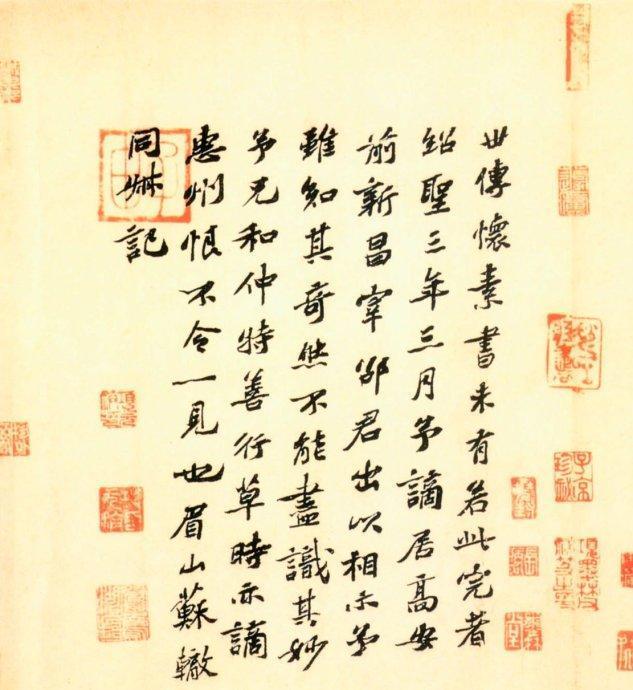 世傳懷素書未有若此完者
紹聖三年三月予謫居高安
前新昌宰邵君出以相示予
雖知其奇然不能盡識其妙
予兄和仲特善行草時亦謫
惠州恨不令一見也眉山蘇轍
同叔記
子京珍秘